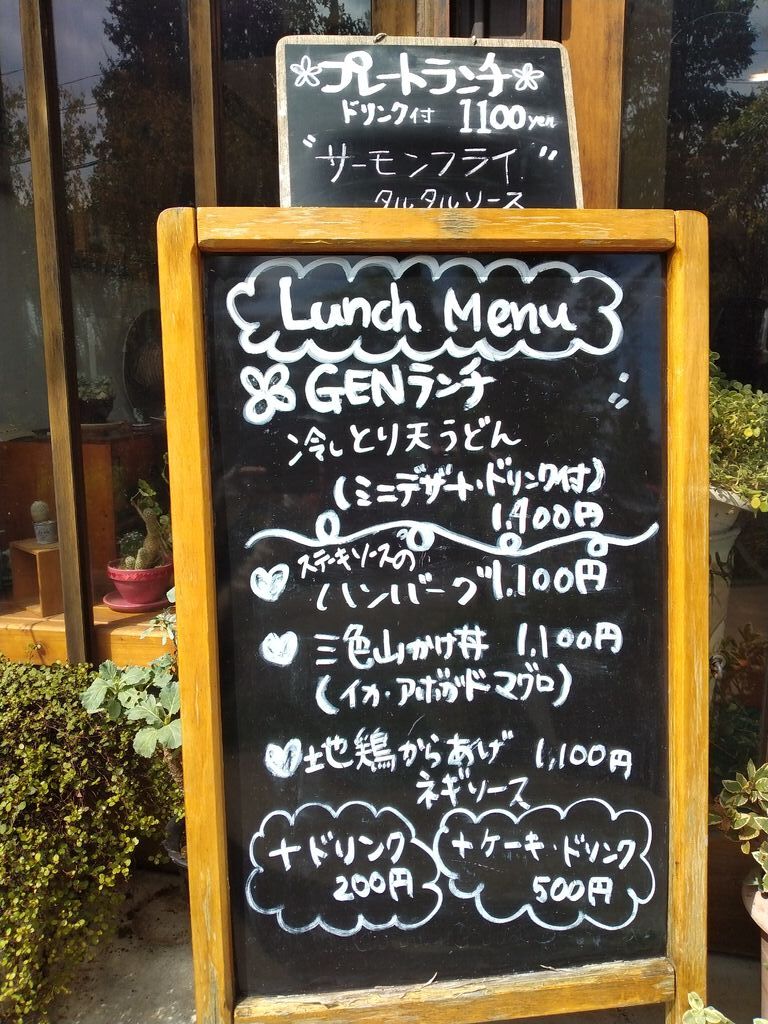 プレートランチ
ドリンク付 1100yen
"サーモンフライ"
タルタルソース
Lunch Menu
GENランチ
冷しとり天うどん
(ミニデザート・ドリンク付)
1,400円
ステーキソースの
ハンバーグ 1,100円
三色山かけ丼 1,100円
(イカ・アボガド マグロ)
地鶏からあげ 1,100円
ネギソース
+ドリンク
200円
+ケーキ・ドリンク
500円